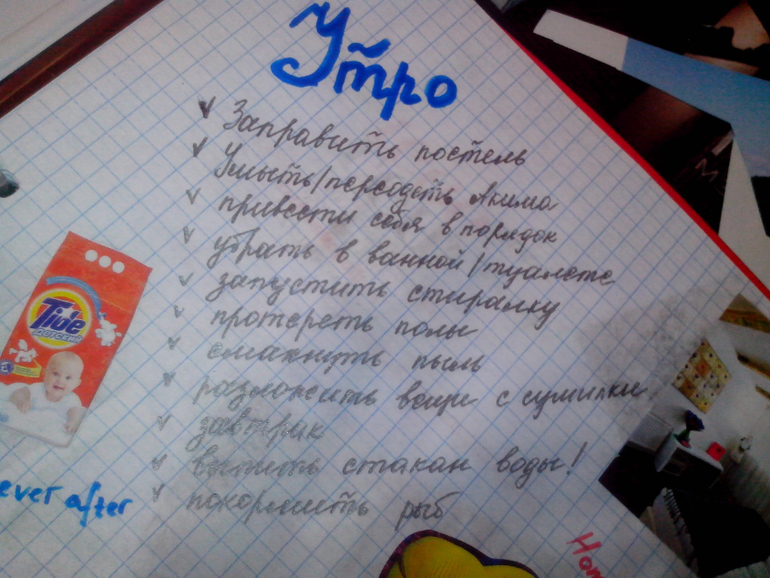 Утро
Заправить постель
Умыть/переодеть Акима
привести себя в порядок
убрать в ванной/туалете
запустить стиралку
протереть полы
смахнуть пыль
разложить вещи с сушилки
завтрак
выпить стакан воды!
покормить рыб
Tide
Детский
ever after